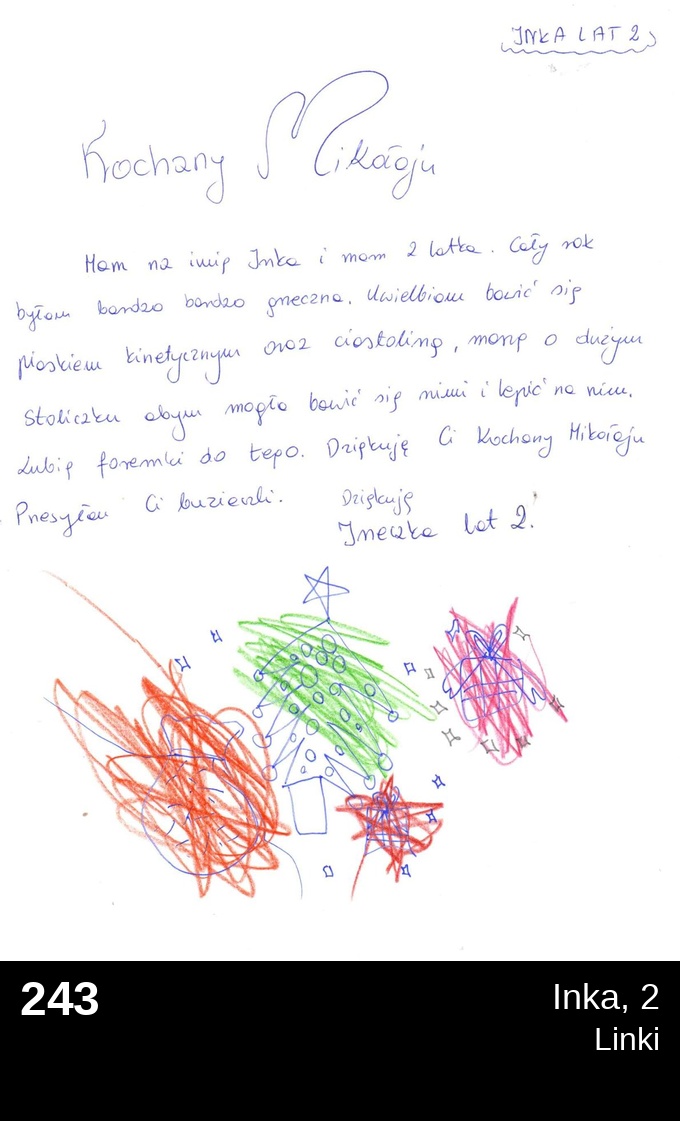 INKA LAT 2
Kochany Mikołaju
Mam na imię Inka i mam 2 latka. Cały rok
byłam bardzo bardzo grzeczna. Uwielbiam bawić się
piaskiem kinetycznym oraz ciastoliną, marzę o dużym
Stoliczku abym mogła bawić się nimi i lepić na nim.
Lubię foremki do tego. Dziękuję Ci Kochany Mikołaju
Przesyłam Ci buziaczki. Dziękuję
Ineczka lat 2.
243
Inka, 2
Linki